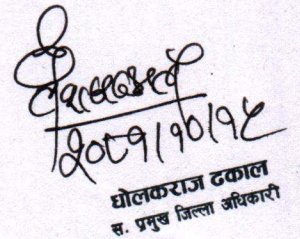 २०८१/१०/१५
घोलकराज ढकाल
स. प्रमुख जिल्ला अधिकारी